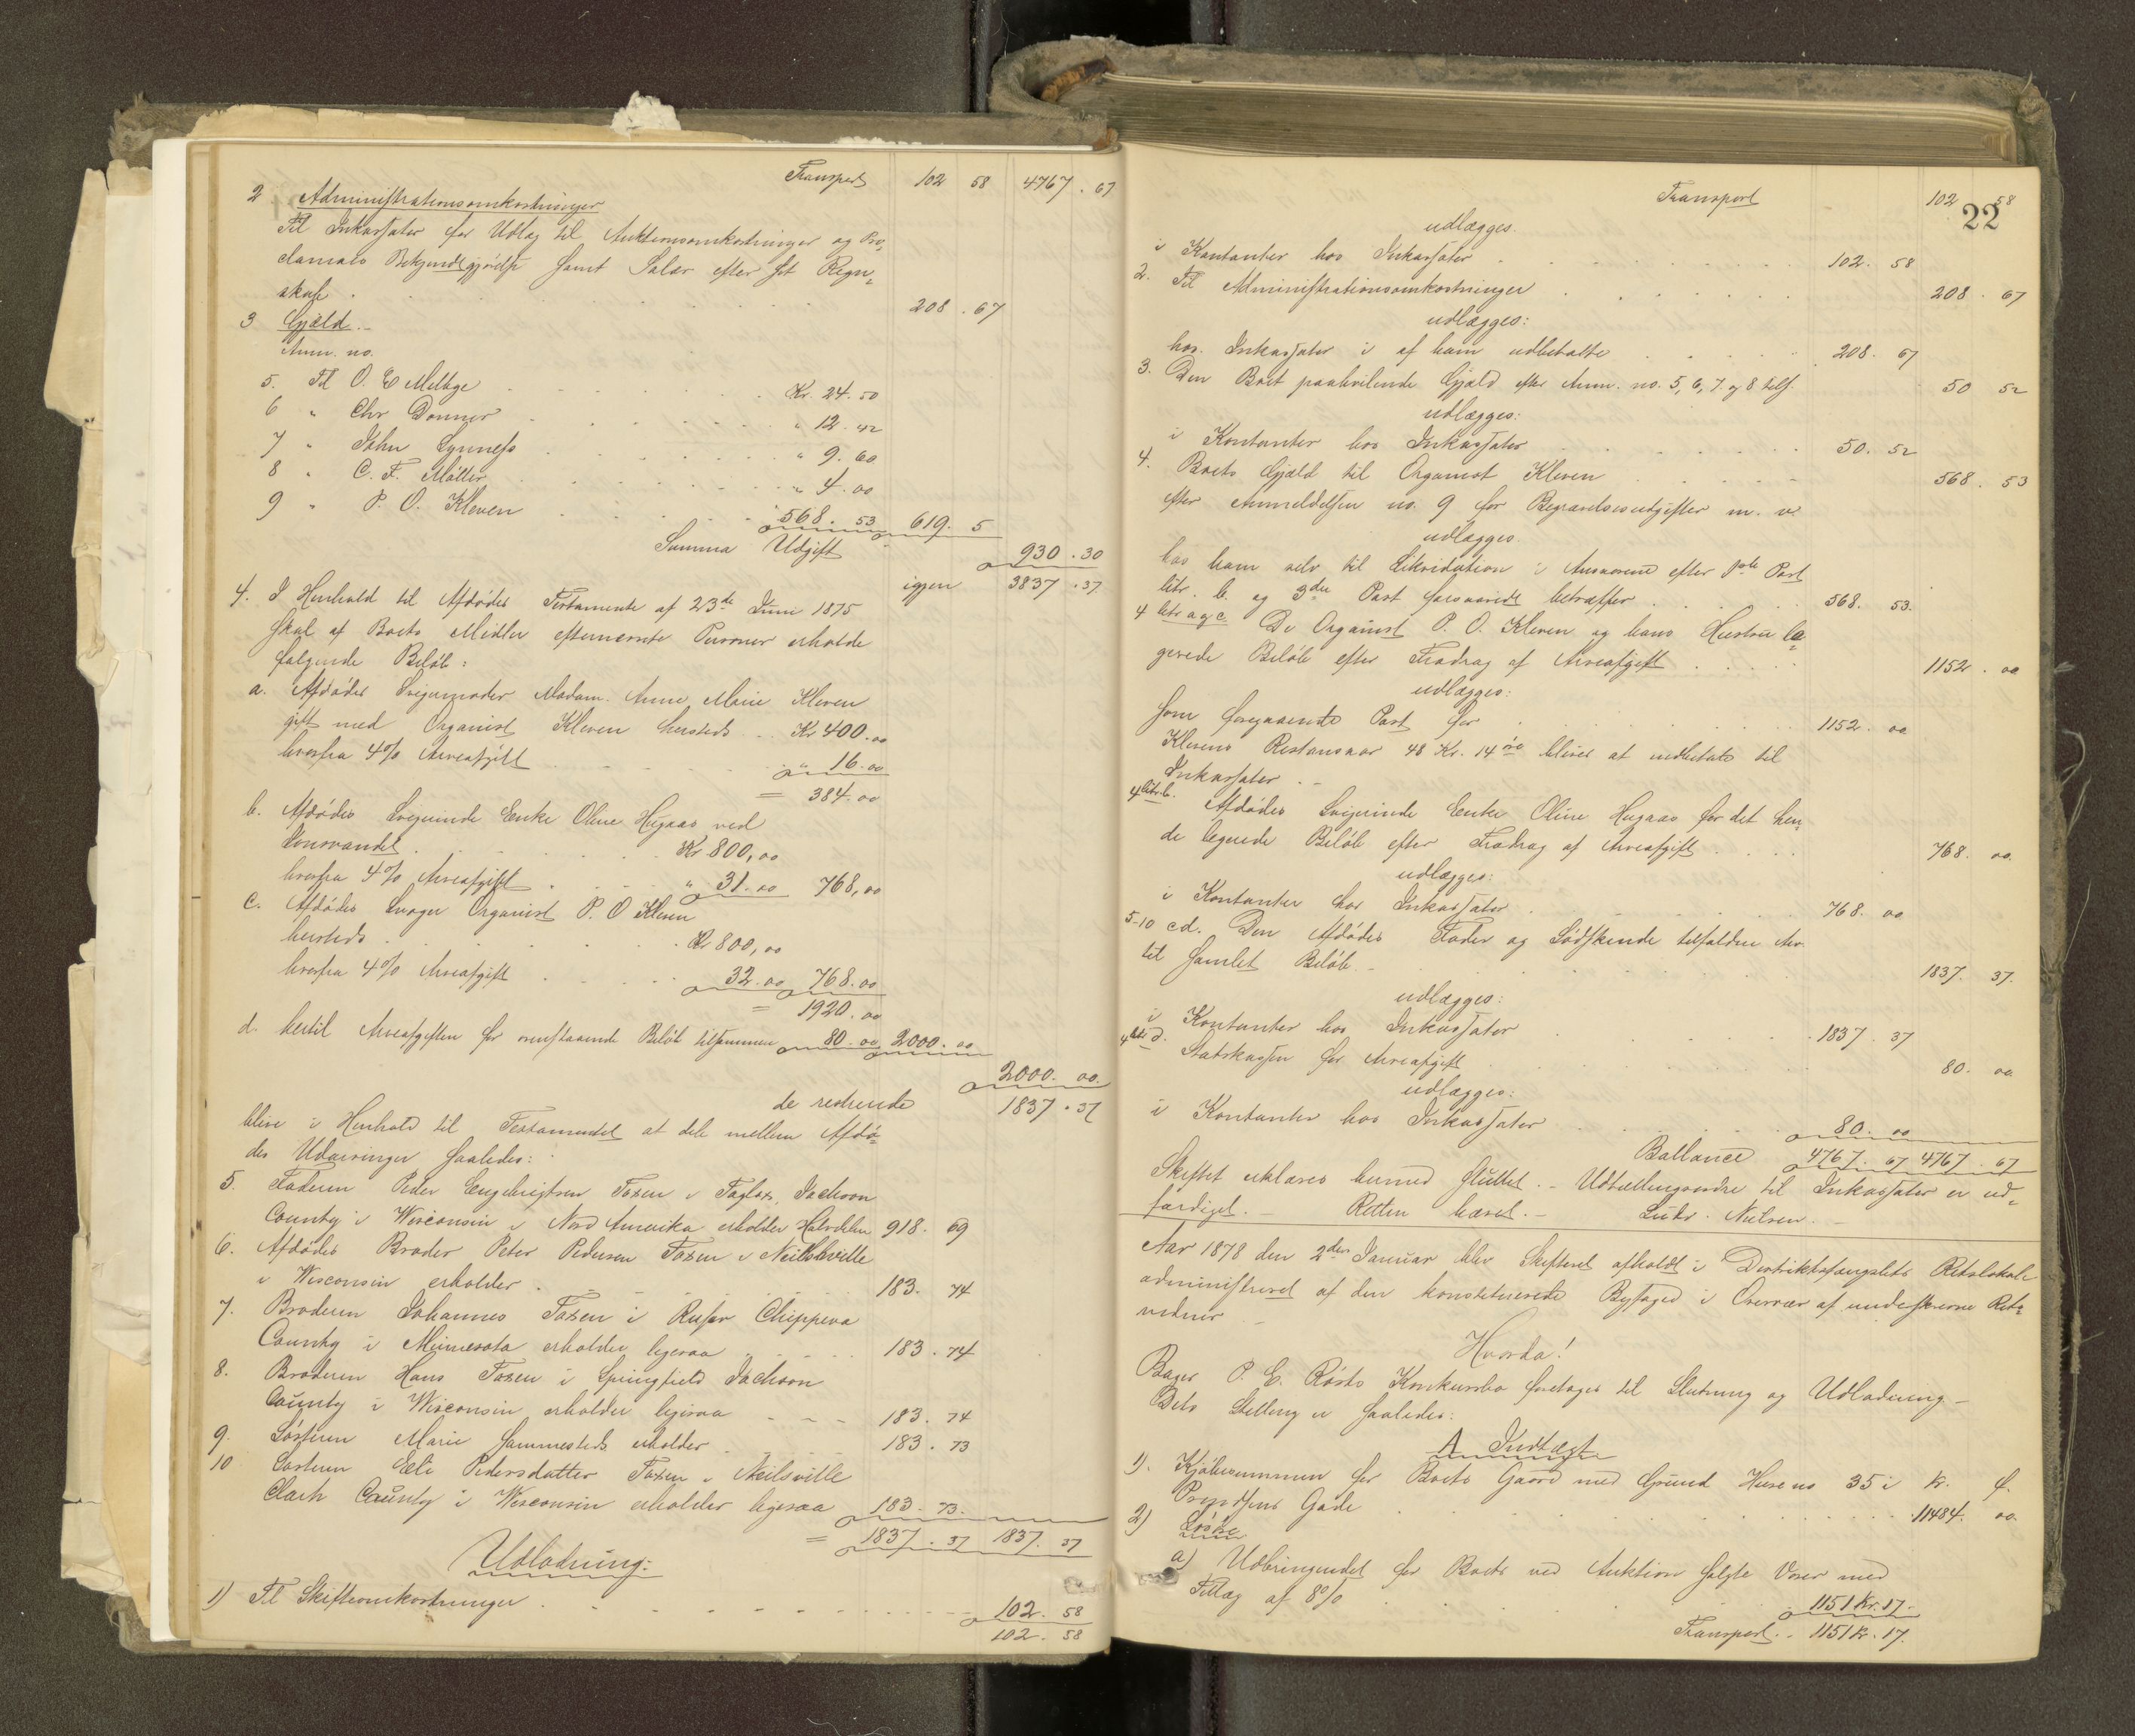 Transport 102 58 4767. 67
2 Administrationsomkostninger
Til Inkassator for Udlæg til Auktionsomkostninger og Pro-
clamaets Bekjendtgjørelse samt Salær efter hst Regn-
skab . 208. 67
3 Gjæld.-
Anm. no.
5. Til O. E Melbye Kr. 24. 50
6 " Chr Donner " 12. 42
7 " John Lynness " 9. 60
8 " C. F. Møller " 4. 00
9 " P. O. Kleven 568. 53 619. 5
Summa Udgift 930. 30
igjen 3837. 37
4. I Henhold til Afdødes Testamente af 23de Juni 1875
skal af Boets Midler efternævnte Personer erholde
følgende Beløb:
a. Afdødes Svigermoder Madam. Anne Marie Kleven
gift med Organist Kleven hersteds Kr 400.00
hvorfra 4% Arveafgift " 16.00
= 384.00
b. Afdødes Svigerinde Enke Oline Hegaas ved
Kr 800,00
hvorfra 4% Arveafgift " 31.00 768,00
c. Afdødes Svoger Organist P. O Kleven
hersteds Kr 800,00
hvorfra 4% Arveafgift 32.00 768.00
= 1920.00
d. hertil Arveafgiften for ovenstaaende Beløb tilsammen 80.00 2000.00
2000. 00.
de resterende 1837. 37
blive i Henhold til Testamentet at dele mellem Afdø-
des Udarvinger saaledes:
5. Faderen Peder Engebrigtsen Foxen i Jackson
County i Wisconsin i Nord Amerika erholder Halvdelen 918. 69
6. Afdødes Broder Peter Pedersen Foxen i Neillsville
i Wisconsin erholder 183. 74
7. Broderen Johannes Foxen i Chippeva
County i Minnesota erholder ligesaa 183. 74
8. Broderen Hans Foxen i Springfield Jackson
County i Wisconsin erholder ligesaa 183. 74
9. Søsteren Marie sammesteds erholder 183. 73
10 Søsteren Eli Pedersdatter Foxen i Neilsville
Clark County i Wisconsin erholder ligesaa 183. 73.
= 1837. 37 1837. 37
Udlodning:
1) Til Skifteomkostninger 102. 58
102. 58
Transport 102 58
22
udlægges.
i Kontanter hos Inkassator 102. 58
2. Til Administrationsomkostninger 208. 67
udlægges:
hos Inkassator i af ham udbetalte 208. 67
3. Den Boet paahvilende Gjæld efter Anm. no. 5, 6, 7 og 8 tils. 50 52
udlægges:
i Kontanter hos Inkassator 50. 52
4. Boets Gjæld til Organist Kleven 568. 53
efter Anmeldelsen no. 9 for Begravelsesudgifter m. v.
udlægges.
hos ham selv til Likvidation i Ansvarene efter 1ste Post
litr. b. og 3die Post forsaavidt betræffer 568. 53.
4 litr a og c. De Organist P. O. Kleven og hans Hustru le-
gerede Beløb efter Fradrag af Arveafgift 1152. 00
udlægges:
som foregaaende Post for 1152. 00
Klevens Restansvar 48 Kr. 14 øre bliver at indbetale til
Inkassator.-
4 litr. b. Afdødes Svigerinde Enke Oline Hegaas for det hen-
de legerede Beløb efter Fradrag af Arveafgift 768. 00.
udlægges:
i Kontanter hos Inkassator 768. 00
5-10 cd. Den Afdødes Fader og Sødskende tilfaldne Arv
til samlet Beløb 1837. 37.
udlægges:
i Kontanter hos Inkassator 1837. 37
4 litr d. Statskassen for Arveafgift 80. 00.
udlægges:
i Kontanter hos Inkassator 80. 00
Ballance 4767. 67 4767. 67
Skiftet erklæres hermed sluttet.- Udbetalingsordre til Inkassator er ud-
færdiget.- Retten hævet.- Ludv. Nielsen.-
Aar 1878 den 2den Januar blev Skifteret afholdt i Distriktsfængslets Retslokale
administreret af den konstituerede Byfoged i Overvær af undeskrevne Rets-
vidner
Hvorda!
Bager P. E. Røsts Konkursbo foretages til Slutning og Udlodning -
Bets Stilling er saaledes:
A Indtægt
1). Kjøbesummen for Boets Gaard med Grund Huse no 35 i Kr. Ø.
Gade 11484. 00.
2) Løsøre
a) Udbringendet for Boets ved Auktion solgte Varer med
Tillæg af 8% 1151 Kr. 17.
Transport 1151 Kr. 17.